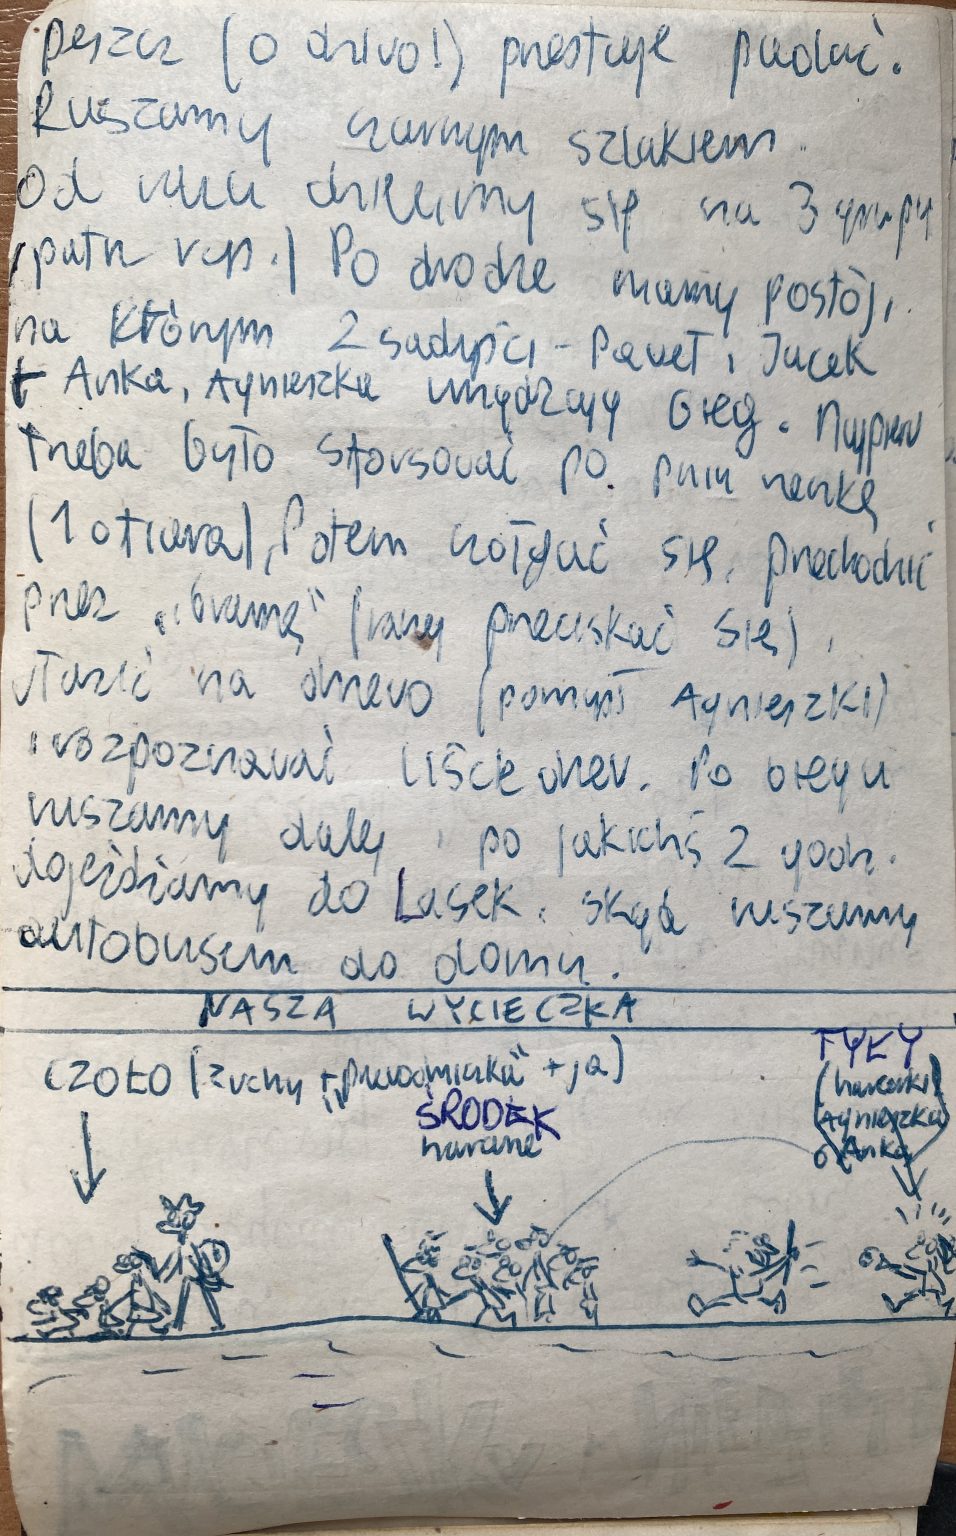 deszcz (o dziwo!) przestaje padać.
Ruszamy czarnym szlakiem.
Od razu dzielimy się na 3 grupy
(patrz rys.) Po drodze mamy postój,
na którym 2 sadyści - Paweł i Jacek
+ Anka, Agnieszka urządzają bieg. Najpierw
trzeba było sforsować po pniu rzekę
(1 ofiara), Potem czołgać się, przechodzić
przez „bramę" (razy przeciskać się),
włazić na drzewo (pomysł Agnieszki)
i rozpoznawać liście drzew. Po biegu
ruszamy dalej i po jakichś 2 godz.
dojeżdżamy do Lasek, skąd ruszamy
autobusem do domu.
NASZA WYCIECZKA
CZOŁO (zuchy + „przewodniczka" + ja)
TYŁY
(harcerki)
Agnieszka
Anka
ŚRODEK
harcerze